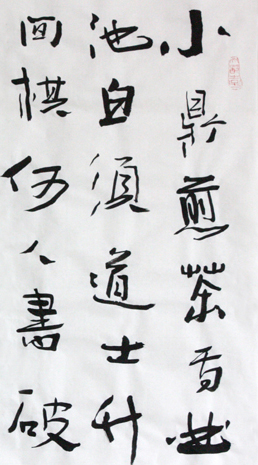 小鼎煎茶面曲
池白須道士竹
間棋何人書破